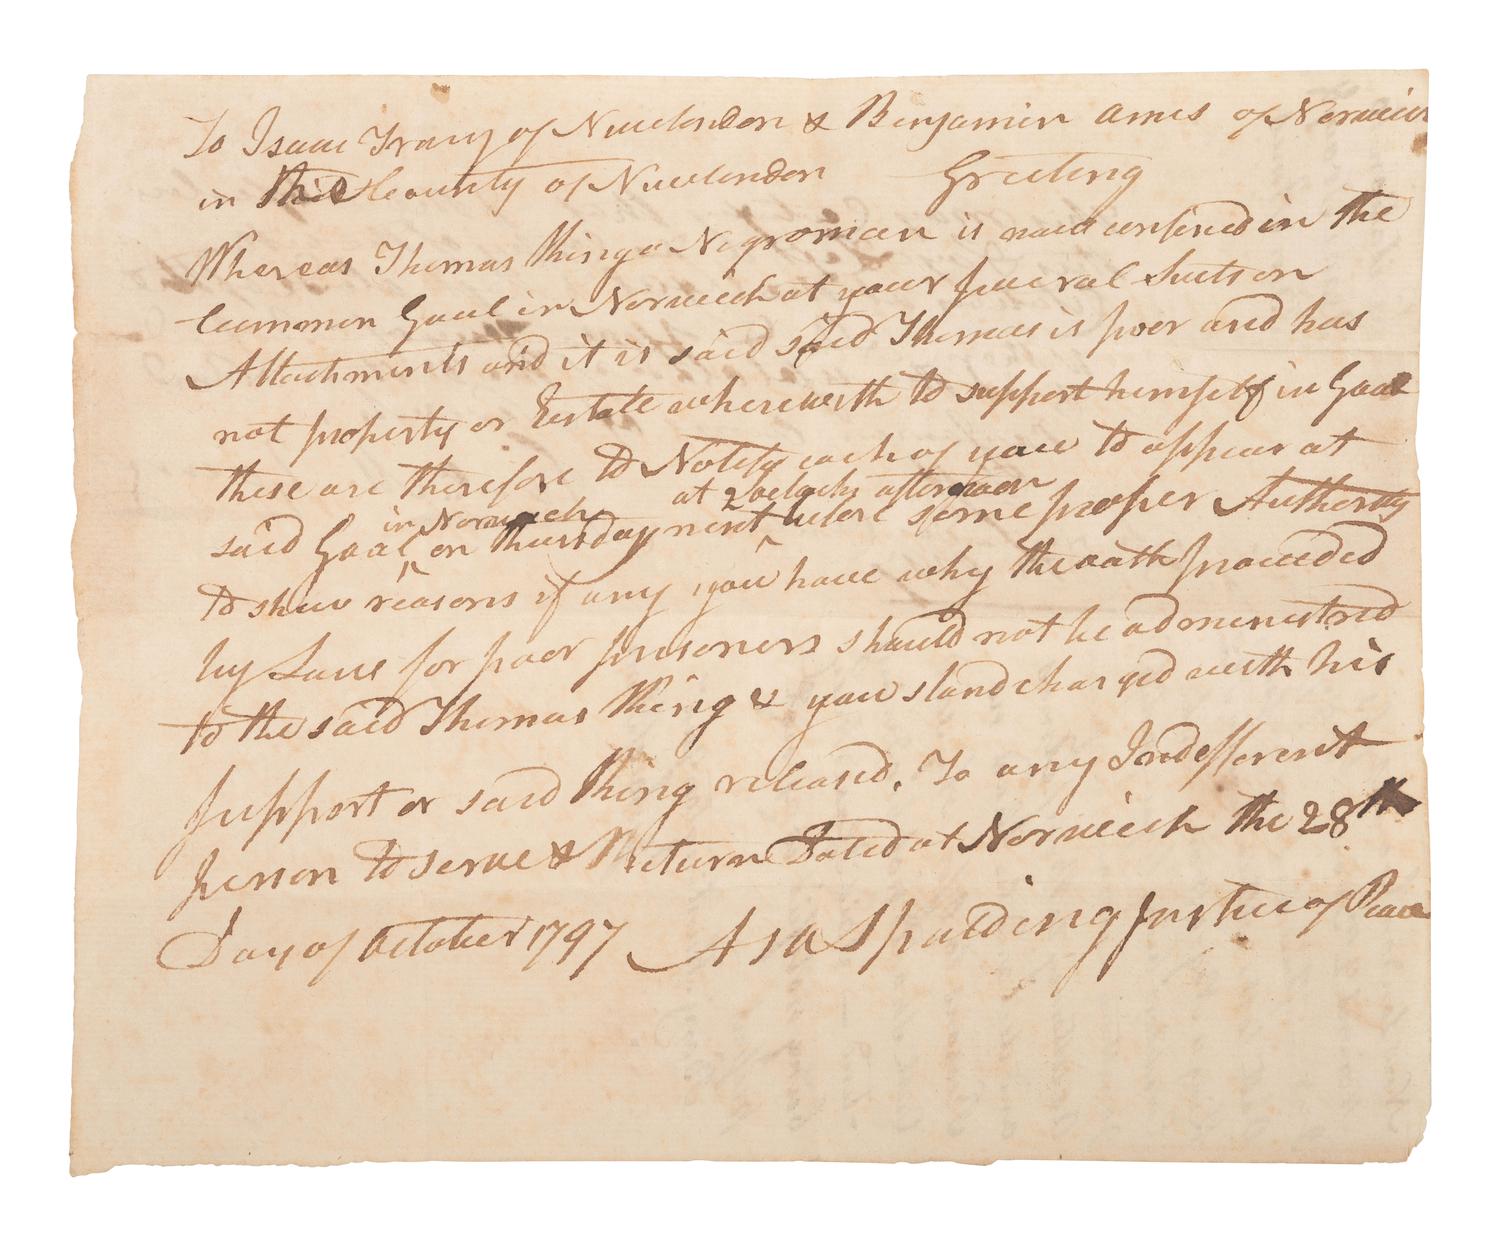 To Isaac Tracy of Newlondon & Benjamin Ames of Norwich
in the County of Newlondon Greeting
Whereas Thomas Thing a Negroman is now confined in the
Common Goal in Norwich at your several Suits on
Attachments and it is said said Thomas is poor and has
not property or Estate wherewith to support himself in Goal
these are therefore to Notify each of you to appear at
in Norwich at 2 oclock afternoon
said Goal on thursday next before some proper Authority
to shew reasons if any you have why the oath proceeded
by Law for poor prisoners should not be administred
to the said Thomas Thing & you stand charged with his
support or said Thing released. To any Indefferent
person to serve & Return Dated at Norwich the 28th
Day of October 1797 Asa Spalding Justice of Peace